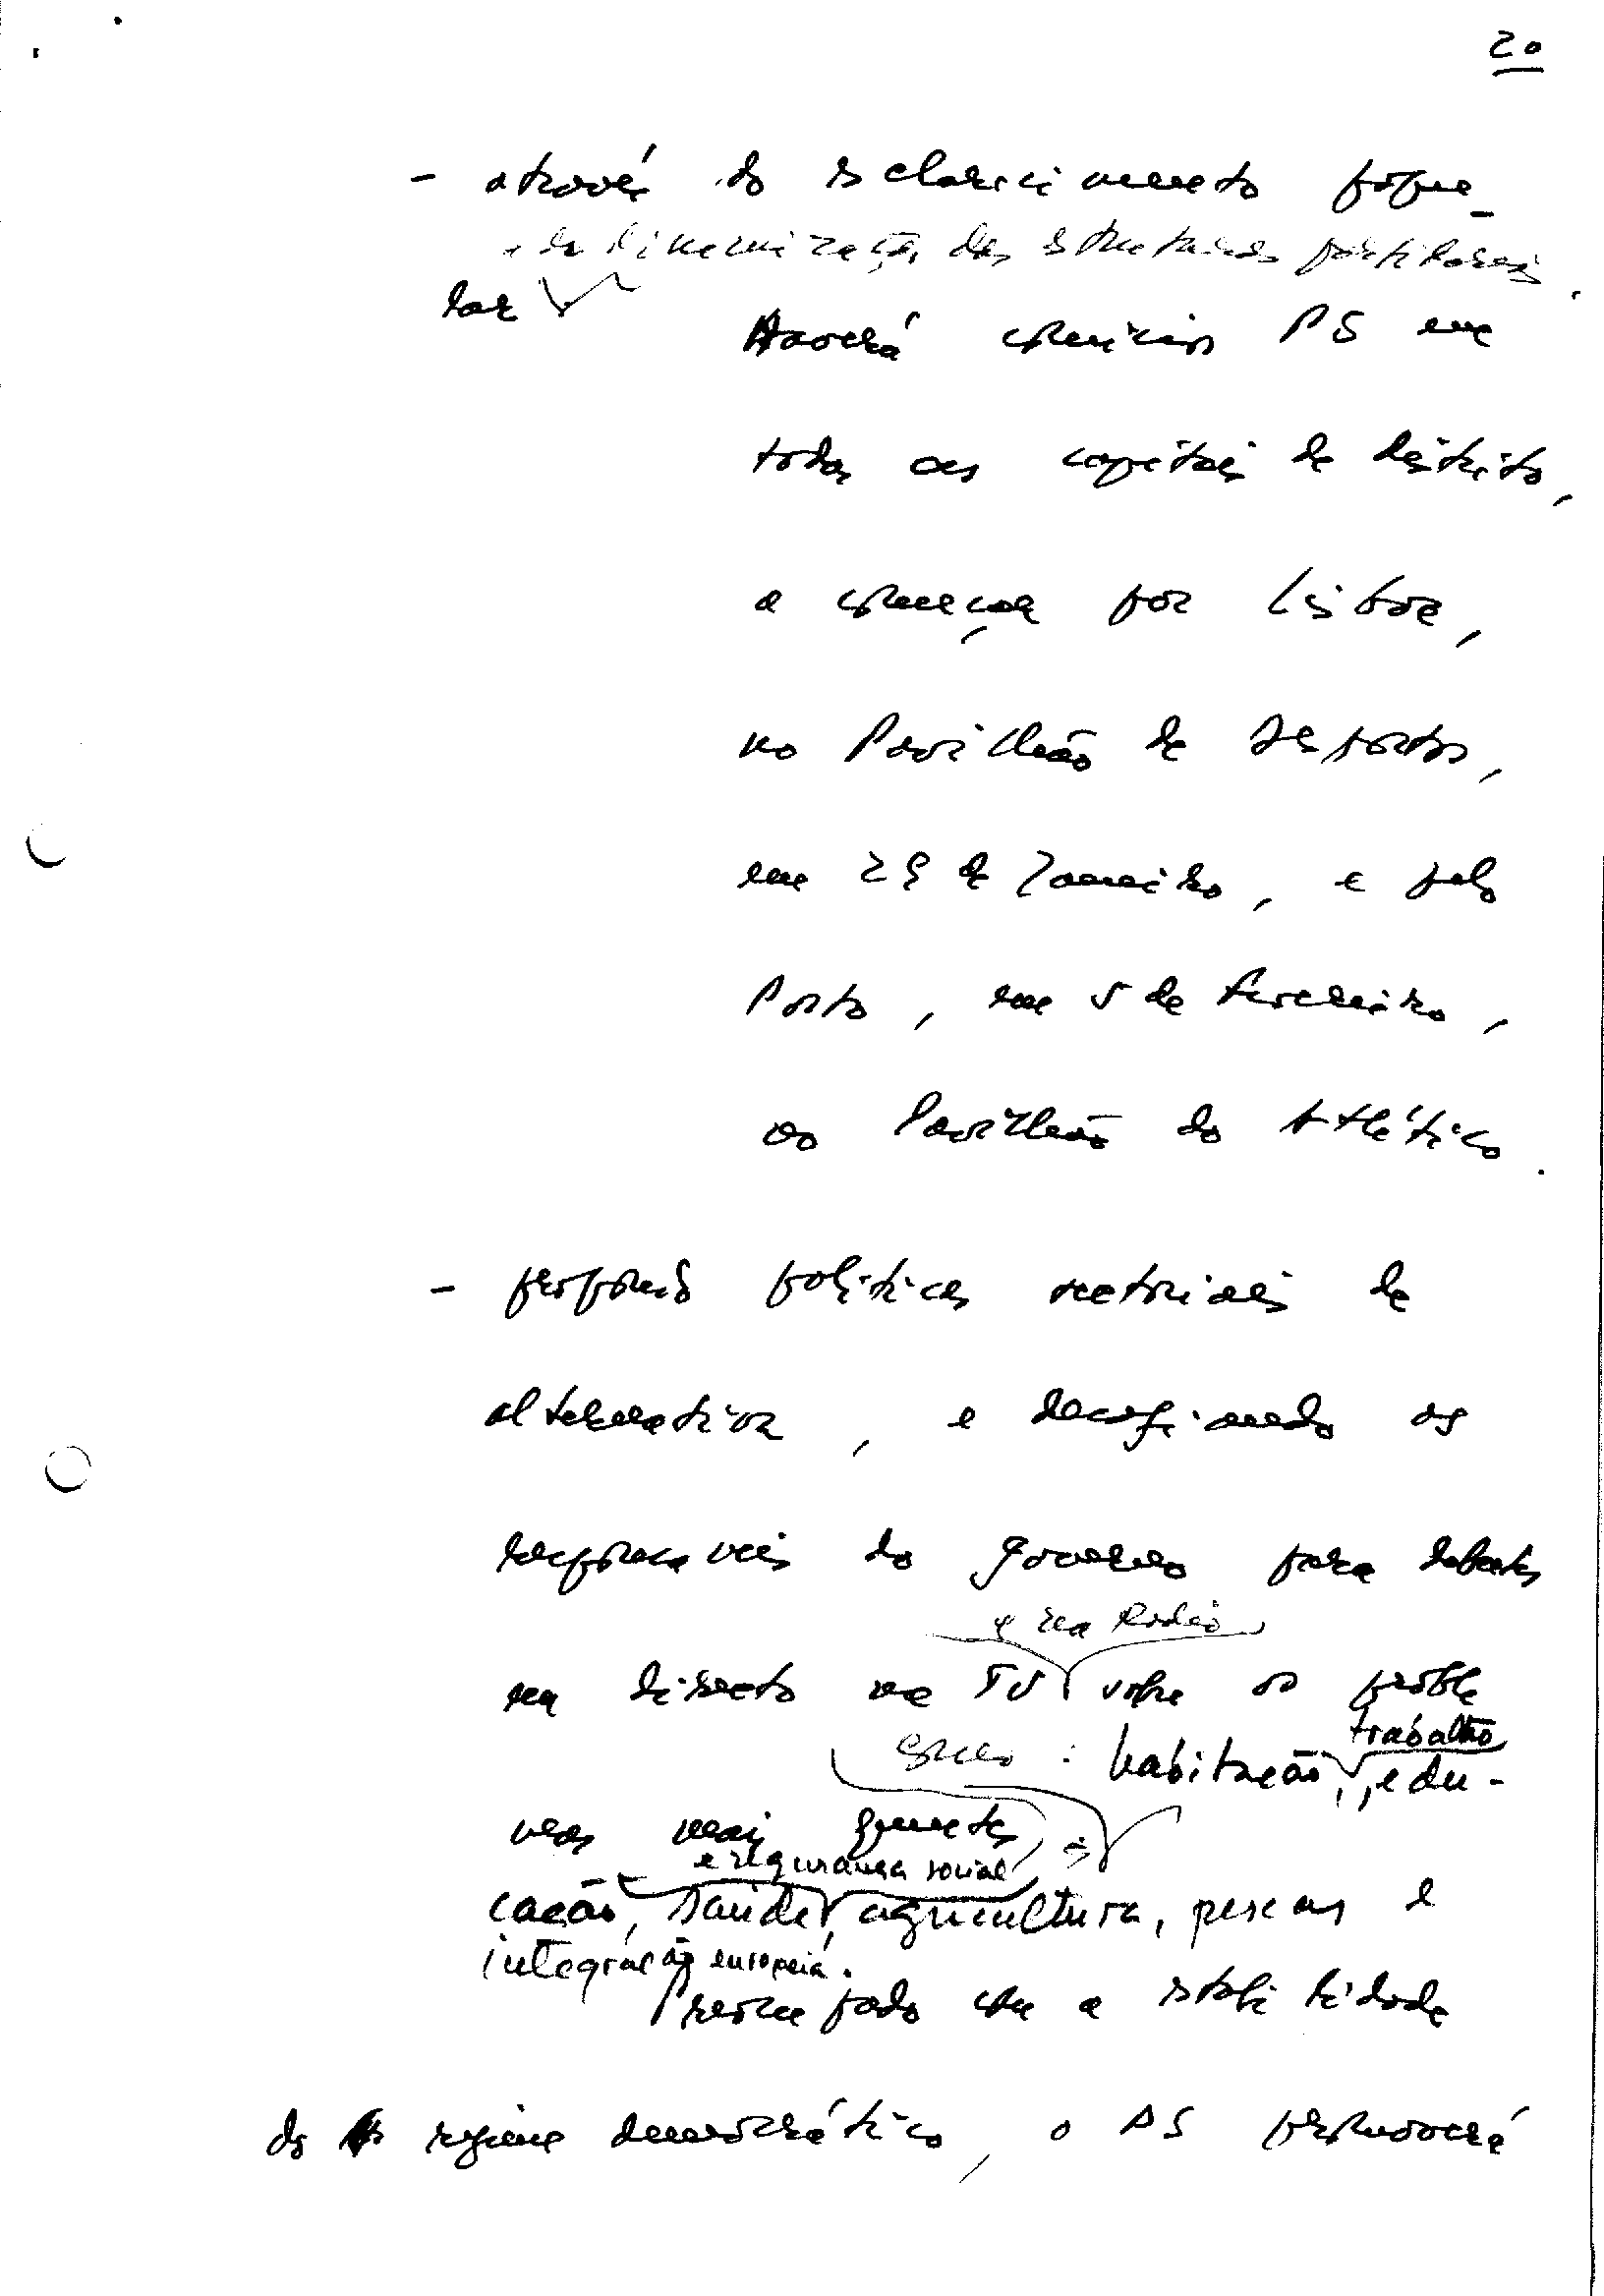 20
- através do esclarecimento popu-
e da dinamização das estruturas partidárias.
lar
Haverá comícios PS em
todas as capitais de distrito,
a começar por Lisboa,
no Pavilhão de Desportos,
em 29 de Janeiro, e pelo
Porto, em 5 de Fevereiro,
no Pavilhão do Atlético.
- propondo políticas sectoriais de
alternativa, e desafiando os
responsáveis do governo para debates
e na Rádio
em directo na TV sobre os proble
trabalho
como: habitação, , edu-
mas mais quentes
e segurança social
cação, saúde, agricultura, pescas e
integração europeia.
Preocupado com a estabilidade
do regime democrático, o PS promoverá